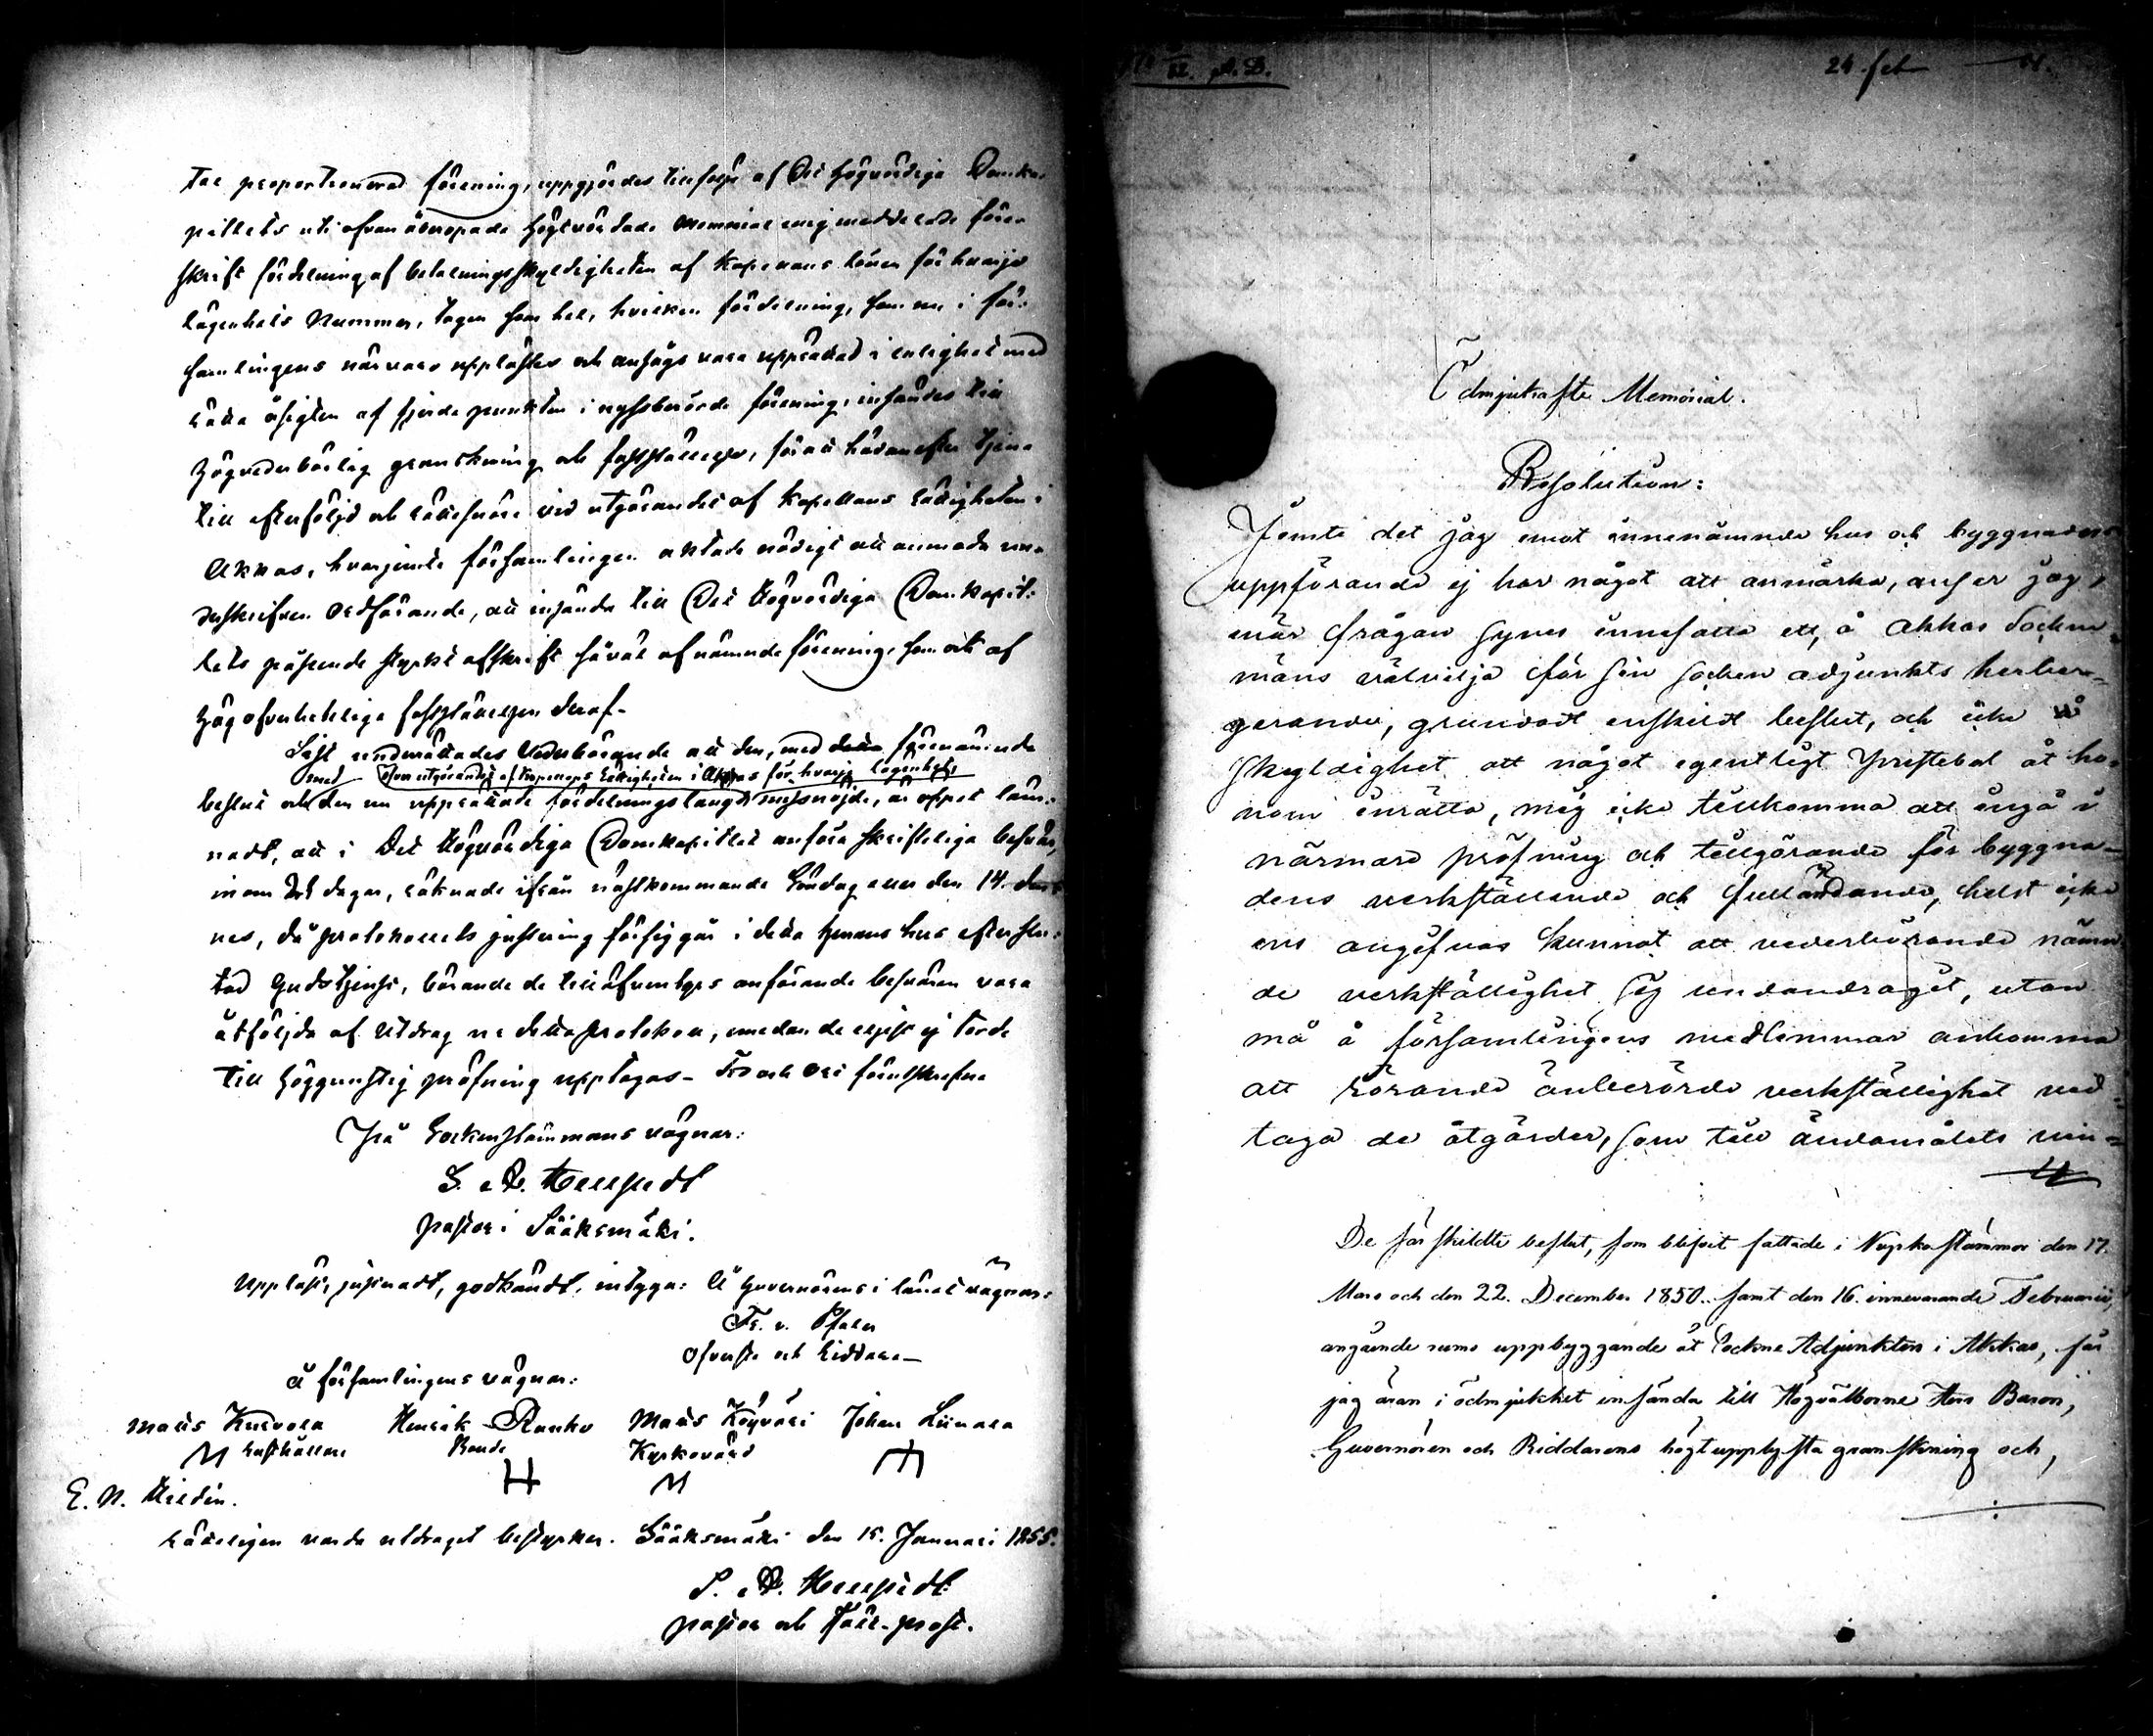 tar proportionerad förening, uppgjordes till följe af Det Högvördiga Domka-
pitlets uti ofvanåberopade högtvördade Memorial mig meddelade före-
skrift fördelning af betalningsskyldigheten af Kapellans lönen för hvarje
lägenhets Nummer, tagen som hel, hvilken fördelning, som nu i för-
samlingens närvaro upplästes och ansågs vara upprättad i enlighet med
rätta åsigten af fjerde punkten i nyssberörde förening, insändes till
högvederbörlig granskning och fastställelse, för att hädanefter tjena
till efterföljd och rättesnöre vid utgörandet af Kapellans rättigheten i
Akkas, hvarjemte församlingen aktade nödigt att anmoda un-
derskrifven Ordförande, att insända till Det Högvördiga Domkapit-
lets påseende styrkt afskrift såväl af nämnde förening som ock af
högofverhetliga fastställelsen deraf-
Sist underrättades Vederbörande att den, med detta förenämnde
med ofvan utgörandet af Kapellans rättigheten i Akkas för hvarje lägenhet
beslut och den nu upprättade fördelningslängd missnöjde, är öppet läm-
nadt, att i Det Högvördiga Domkapitlet anföra skriftliga besvär,
inom dagar, räknade ifrån nästkommande Söndag eller den 14. den-
nes, då protokollets justering försiggår i detta Herrans hus efter slu-
tad Gudstjenst, börande de till äfventyrs anförande besvären vara
åtföljda af Utdrag ur detta Protokoll, emedan de eljest ej torde
till höggunstig pröfning upptagas- Tid och Ort förutskrefne
På Sockenstämmans vägnar:
pastor i Sääksmäki.
Uppläst, justeradt, godkändt, intyga: Å Guvernörens i länet vägnar:
Öfverste och Riddare-
Å församlingens vägnar:
Matts Kurvola Henrik Ranko Matts Köyväri Johan Liinala
M Rusthållare Bonde Kyrkovärd
H M
E. N.
Rätteligen vorda utdraget bestyrker. Sääksmäki den 15. Januari 1855.
pastor och Kont. prost.
24 feb
Ödmjukaste Memorial.
Resolution:
Jemte det jag emot innenämnde hus och byggnaders
uppförande ej har något att anmärka, anser jag,
enär frågan synes innefatta ett, å Akkas Socken-
mäns välvilja för sin Socken adjunkts herber-
gerande, grundadt enskildt beslut, och icke
skyldighet att något egentligt Prestebol åt ho-
nom inrätta, mig icke tillkomma att ingå i
närmare pröfning och tillgörande för byggna-
dens verkställande och fulländande, helst icke
ens angifvas kunnat att vederbörande nämn-
de verkställighet sig undandragit, utan
må å församlingens medlemmar ankomma
att rörande änberörde verkställighet vid-
taga de åtgärder, som till ändamålets vin-
De särskildte beslut, som blifvit fattade i Kyrkostämmor den 17.
Mars och den 22. December 1850. samt den 16. innevarande Februarii,
angående rums uppbyggande åt Sockne Adjunkten i Akkas, får
jag äran i ödmjukhet insända till Högvälborne Herr Baron,
Guvernören och Riddarens högtupplysta granskning och,